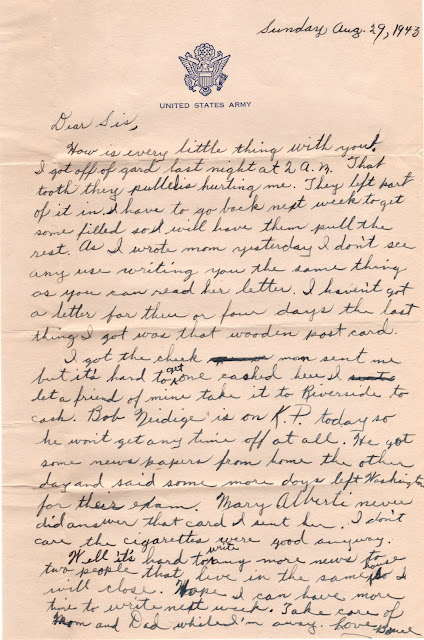 Sunday Aug. 29, 1943
UNITED STATES ARMY
Dear Sis,
How is every little thing with you?
I got off of gard last night at 2 A.M. That
tooth they pulled is hurting me. They left part
of it in. I have to go back next week to get
some filled so I will have them pull the
rest. As I wrote mom yesterday I don't see
any use writing you the same thing
as you can read her letter. I haven't got
a letter for three or four days the last
thing I got was that wooden post card.
I got the check mom sent me
but it's hard to get one cashed here I
let a friend of mine take it to Riverside to
cash. Bob Neidige is on K.P. today so
he won't get any time off at all. He got
some news papers from home the other
day and said some more days left Washington
for their exam. Mary Alberti never
did answer that card I sent her. I don't
care the cigarettes were good anyway.
Well it's hard to write any more news to
two people that live in the same house so I
will close. Hope I can have more
time to write next week. Take care of
Mom and Dad while I'm away. Love